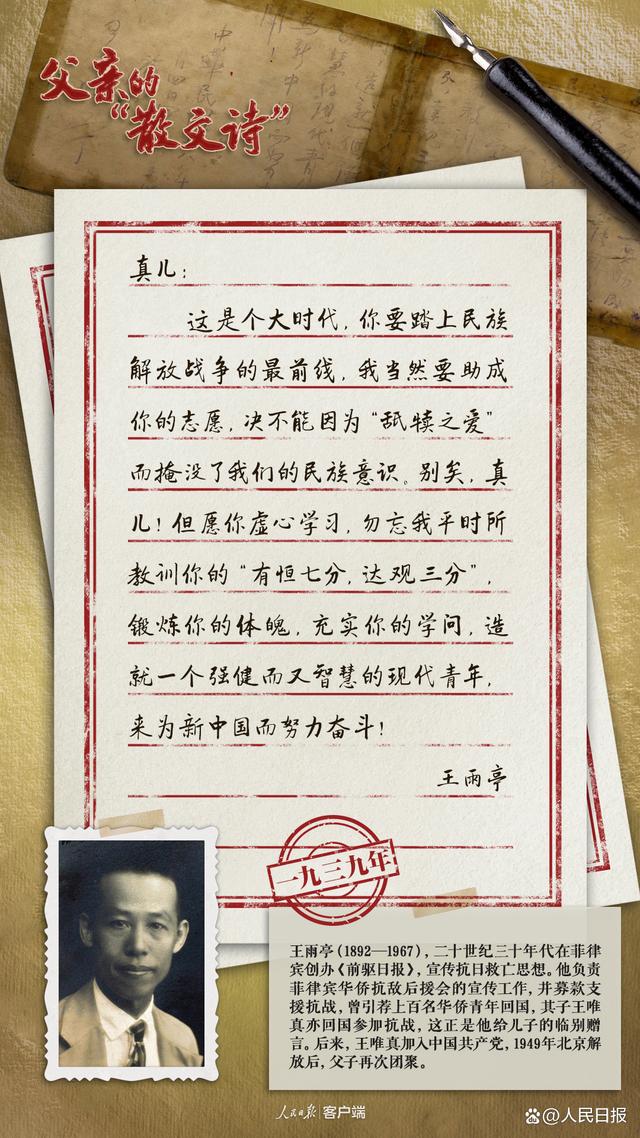 父亲的
“散文诗”
真儿：
这是个大时代，你要踏上民族
解放战争的最前线，我当然要助成
你的志愿，决不能因为“舐犊之爱”
而掩没了我们的民族意识。别矣，真
儿！但愿你虚心学习，勿忘我平时所
教训你的“有恒七分，达观三分”，
锻炼你的体魄，充实你的学问，造
就一个强健而又智慧的现代青年，
来为新中国而努力奋斗！
王雨亭
一九三九年
王雨亭（1892—1967），二十世纪三十年代在菲律
宾创办《前驱日报》，宣传抗日救亡思想。他负责
菲律宾华侨抗敌后援会的宣传工作，并募款支
援抗战，曾引荐上百名华侨青年回国，其子王唯
真亦回国参加抗战，这正是他给儿子的临别赠
言。后来，王唯真加入中国共产党，1949年北京解
放后，父子再次团聚。
人民日报 客户端
@人民日报